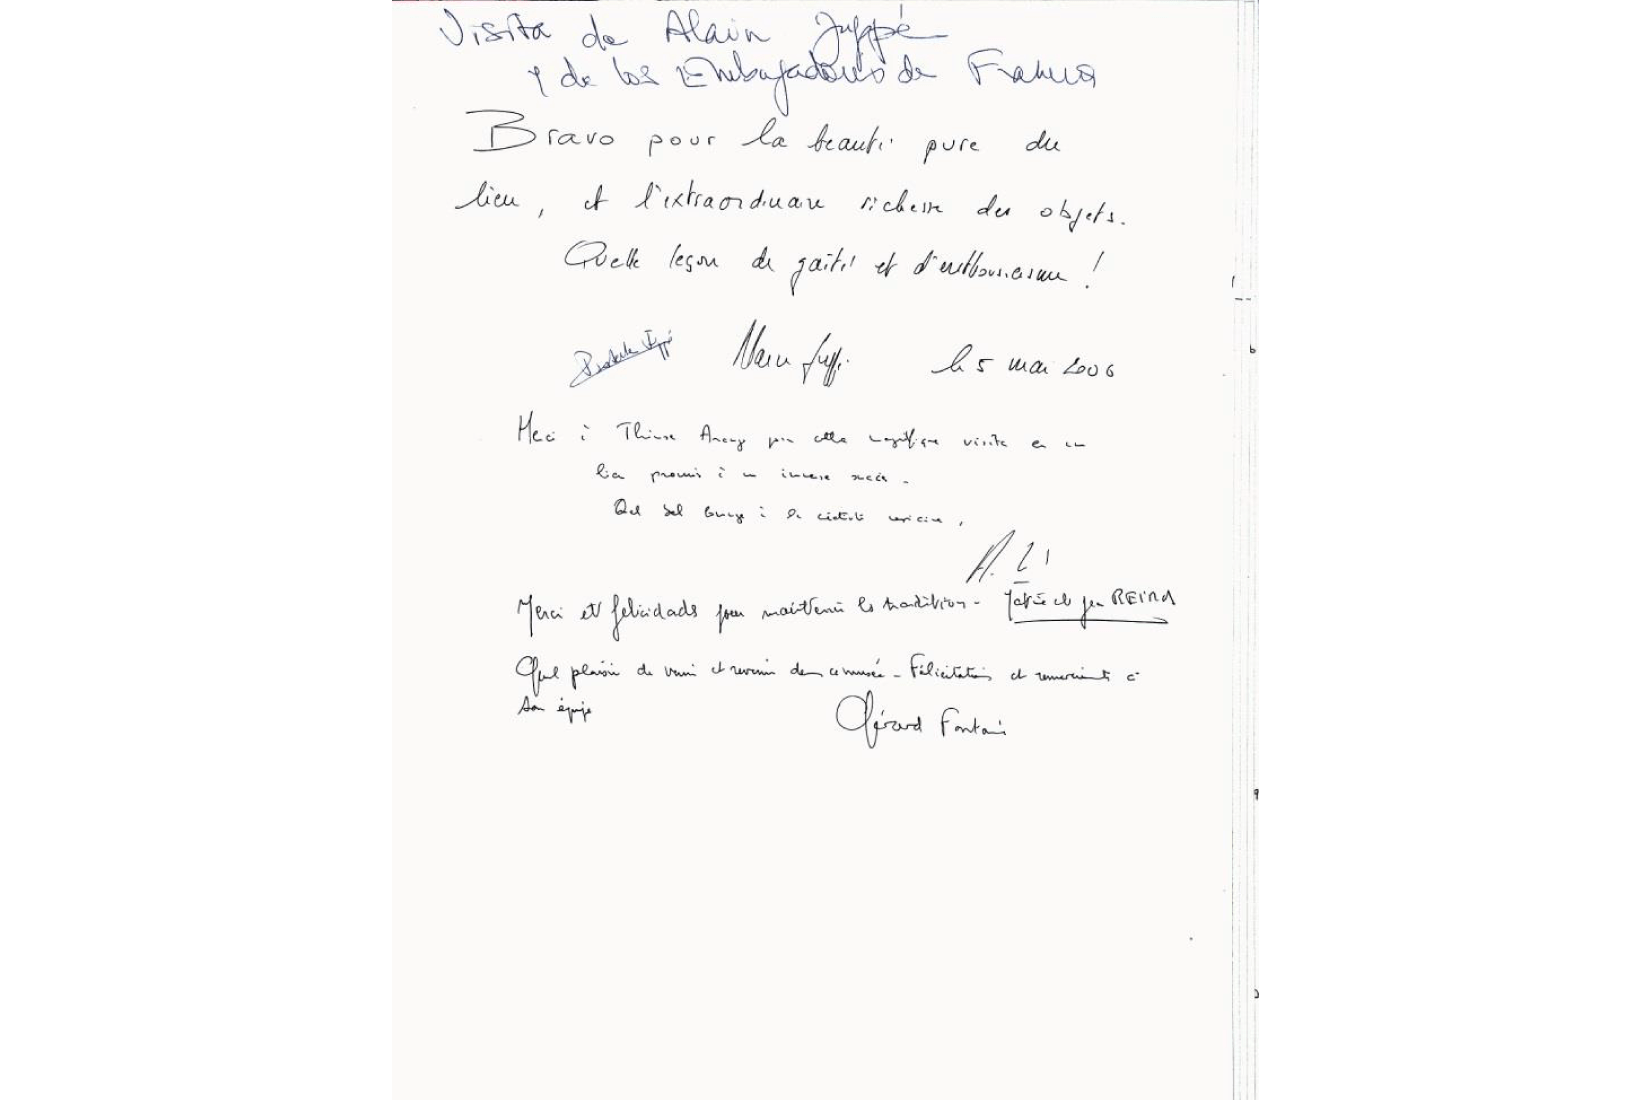 Visita de Alain Juppé
y de los Embajadores de Francia
Bravo pour la beauté pure du
lieu, et l'extraordinaire richesse des objets.
Quelle leçon de gaîté et d'enthousiasme !
Juppé Alain Juppé le 5 mai 2006
Merci à Thérèse pour cette magnifique visite en un
lieu promis à un immense succès.
Quel bel hommage à la créativité mexicaine,
Merci et felicidads pour maintenir les traditions - et Jean REINA
Quel plaisir de venir et revenir dans ce musée - Félicitations et remerciements à
son équipe
Gérard Fontaine